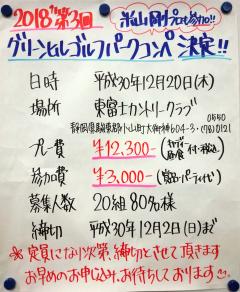 2018'第3回 米山剛プロも参加!!
グリーンヒルゴルフパークコンペ 決定!!
日時 平成30年12月20日(木)
場所 東富士カントリークラブ
静岡県駿東郡小山町大御神604-3・0550(78)0121
プレー費 ¥12,300- (キャディ 昼食 付・税込)
参加費 ¥3,000- (賞品・パーティ代)
募集人数 20組80名様
締切 平成30年12月2日(日)まで
※定員になり次第、締切とさせて頂きます
お早めのお申し込み、お待ちしております